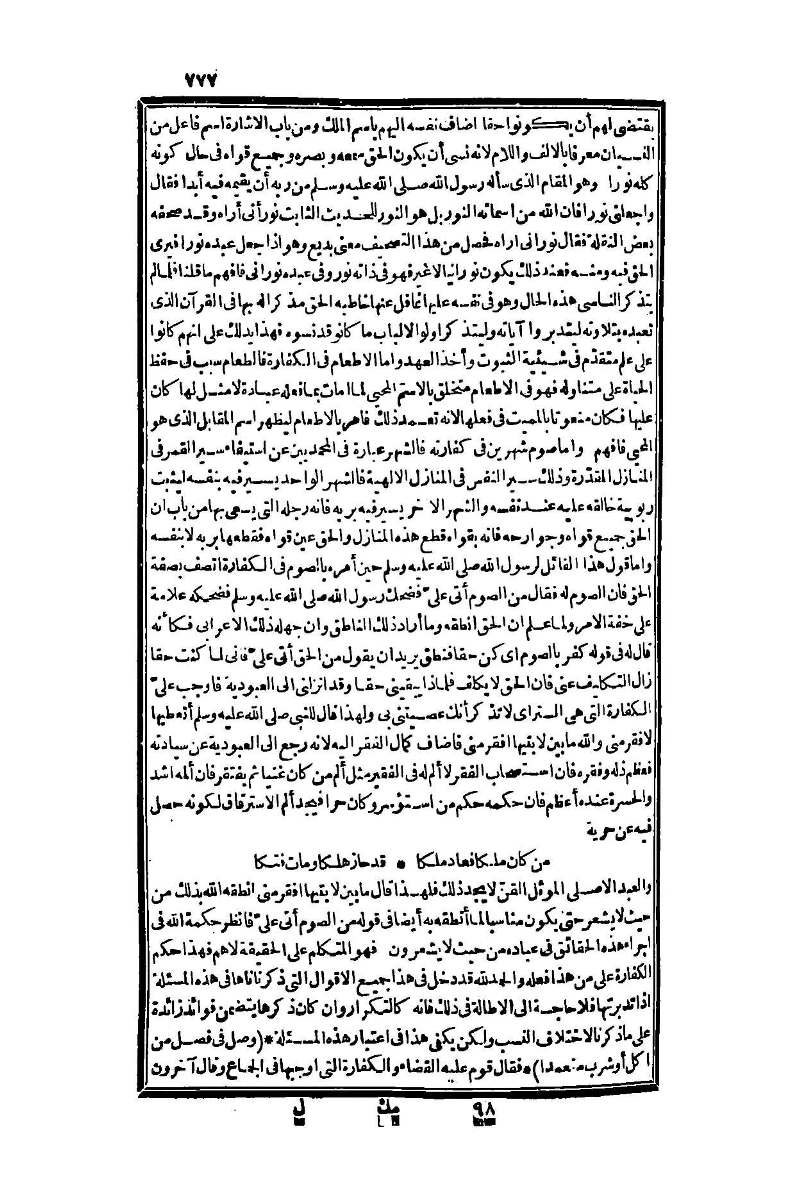 ٧٧٧
يقتضى لهم أن يكونوا حقا اضاف نفسه اليهم باسم الملك ومن باب الاشارة اسم فاعل من
النسيان معرفا بالالف واللام لانه نسى أن يكون الحق سمعه وبصره وجميع قواه فى حال كونه
كله نورا وهو المقام الذى سأله رسول الله صلى الله عليه وسلم من ربه أن يقيمه فيه أبدا فقال
واجعلنى نورا فان الله من اسمائه النور بل هو النور للحديث الثابت نور أنى أراه وقد صحفه
بعض النقلة فقال نورانى اراه فحصل من هذا التصحيف معنى بديع وهو اذا جعل عبده نورا فيرى
الحق فيه ومنه فعند ذلك يكون نورانيا لاغير فهو فى ذاته نور وفى عبده نورانى فافهم ما قلنا فلما لم
يتذكر الناسى هذه الحال وهو فى نفسه عليها غافل عنها خاطبه الحق مذكرا له بها فى القرآن الذى
تعبده بتلاوته ليتدبروا آياته وليتذكر اولو الالباب ما كانو قد نسوه فهذا يدلك على انهم كانوا
على علم متقدم فى شيئية الثبوت وأخذ العهد واما الاطعام فى الكفارة فالطعام سبب فى حفظ
الحياة على متناوله فهو فى الاطعام متخلق بالاسم المحيى لما امات بما فعله عبادة لا مثل لها كان
عليها فكان منعوتا بالمميت فى فعلها لانه تعمد ذلك فامر بالاطعام ليظهر اسم المقابل الذى هو
المحيى فافهم واما صوم شهرين فى كفارته فالشهر عبارة فى المحمديين عن استيفاء سير القمر فى
المنازل المقدرة وذلك سير النفس فى المنازل الالهية فالشهر الواحد يسير فيه بنفسه ليثبت
ربوبية خالقه عليه عند نفسه والشهر الاخر يسير فيه بربه فانه رجله التى يسعى بها من باب ان
الحق جميع قواه وجوارحه فانه بقواه قطع هذه المنازل والحق عين قواه فقطعها بربه لا بنفسه
واما قول هذا القائل لرسول الله صلى الله عليه وسلم حين أمره بالصوم فى الكفارة اتصف بصفة
الحق فان الصوم له فقال من الصوم أتى علىّ فضحك رسول الله صلى الله عليه وسلم فضحكه علامة
على خفة الامر ولما علم ان الحق انطقه وما أراد ذلك الناطق وان جهله ذلك الاعرابى فكأنه
قال له فى قوله كفر بالصوم اى كن حقا فنطق يريد ان يقول من الحق أتى علىّ فانى لما كنت حقا
زال التكليف عنى فان الحق لا يكلف فلماذا يبقينى حقا وقد انزلنى الى العبودية فاوجب علىّ
الكفارة التى هى الستر اى لا تذكر أنك عصيتنى بى ولهذا قال للنبى صلى الله عليه وسلم أنعطيها
لافقر منى والله ما بين لابتيها افقر منى فاضاف كمال الفقر اليه لانه رجع الى العبودية عن سيادته
فعظم ذله وفقره فان استصحاب الفقر لا ألم له فى الفقير مثل ألم من كان غنيا ثم يفتقر فان ألمه اشد
والحسرة عنده أعظم فان حكمه حكم من استؤسر وكان حرا فيجد ألم الاسترقاق لكونه حصل
فيه عن حرية
من كان ملكا فعاد ملكا * قد حاز هلكا ومات فتكا
والعبد الاصلى المؤثل القنّ لا يجد ذلك فلهذا قال ما بين لابتيها افقر منى انطقه الله بذلك من
حيث لا يشعر حتى يكون مناسبا لما أنطقه به أيضا فى قوله من الصوم أتى علىّ فانظر حكمة الله فى
اجراء هذه الحقائق فى عباده من حيث لا يشعرون فهو المتكلم على الحقيقة لا هم فهذا حكم
الكفارة على من هذا فعله والحمد لله قد دخل فى هذا جميع الاقوال التى ذكرناها فى هذه المسئلة
اذا تدبرتها فلا حاجة الى الاطالة فى ذلك فانه كالتكرار وان كان ذكرها يتضمن فوائد زائدة
على ما ذكرنا لاختلاف النسب ولكن يكفى هذا فى اعتبار هذه المسئلة *(وصل فى فصل من
اكل أو شرب متعمدا)* فقال قوم عليه القضاء والكفارة التى اوجبها فى الجماع وقال آخرون
٩٨ مك ل